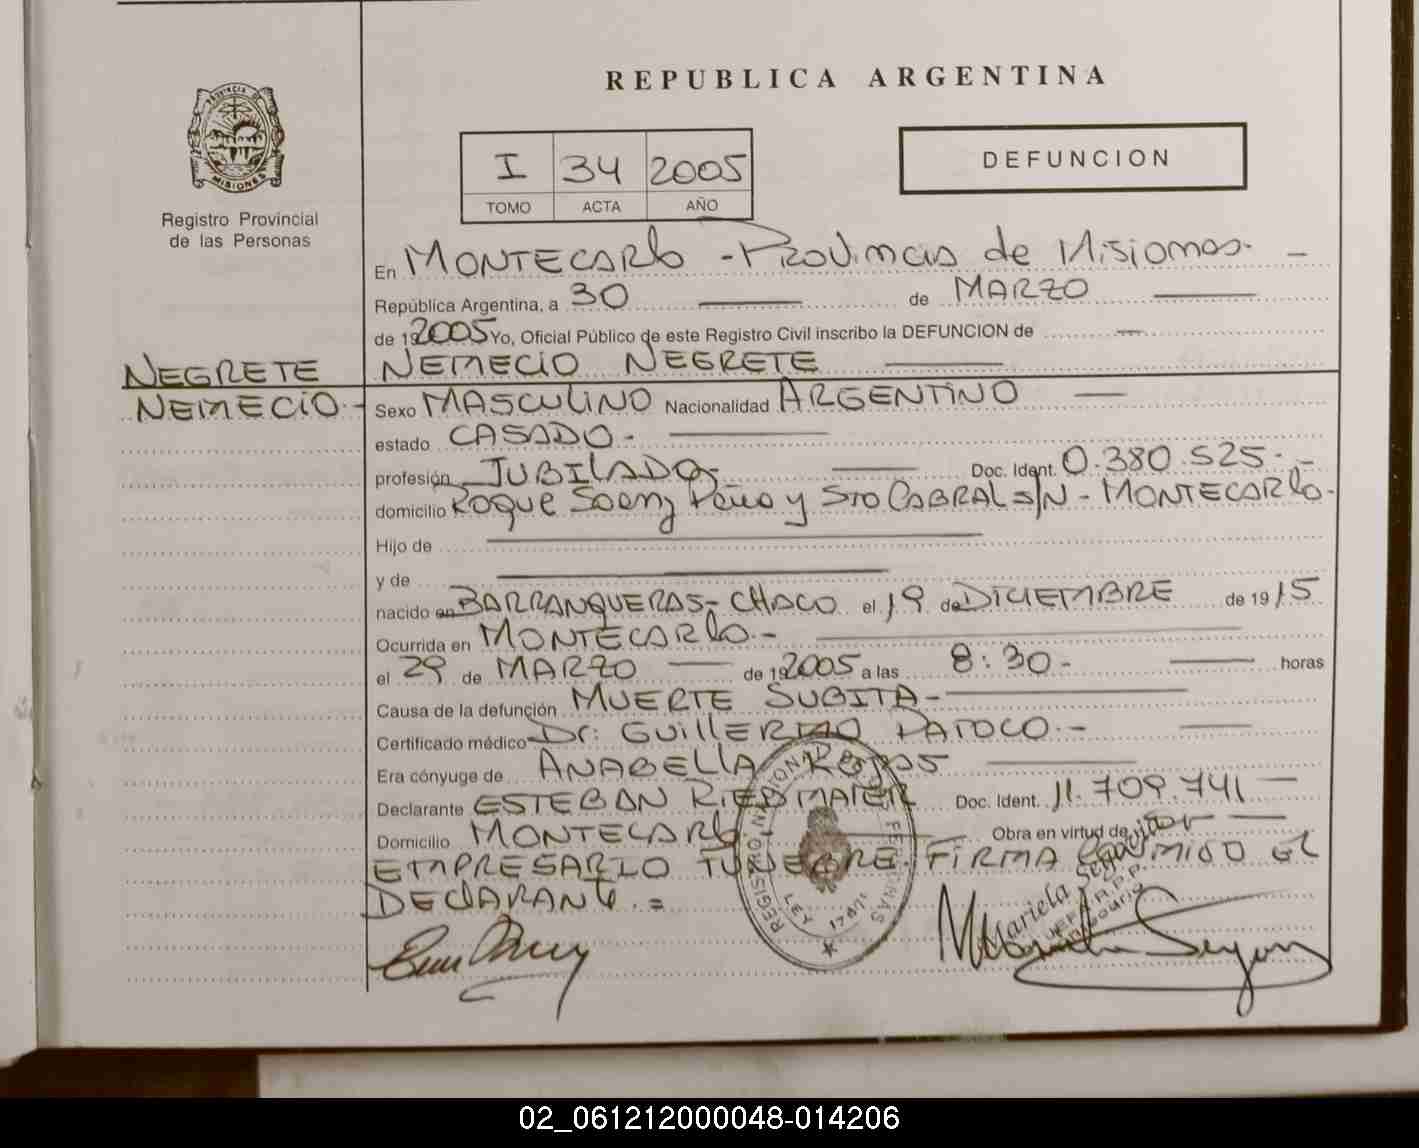 REPUBLICA ARGENTINA
PROVINCIA DE MISIONES
Registro Provincial
de las Personas
I 34 2005
TOMO ACTA AÑO
DEFUNCION
En MONTECARlo - PROVinciA de Misiones. -
República Argentina, a 30 de MARZO
de 192005 Yo, Oficial Público de este Registro Civil inscribo la DEFUNCION de
NEGRETE NEMECIO NEGRETE
NEMECIO.- Sexo MASCULINO Nacionalidad ARGENTINO
estado CASADO.-
profesión JUBILADO- Doc. Ident. 0.380.525.-
domicilio Roque Saenz Peña y STO CABRAL S/N - MONTECARlo-
Hijo de
y de
nacido en BARRANQUERAS- CHACO el 19 de DICIEMBRE de 1915
Ocurrida en MONTECARlo.-
el 29 de MARZO de 192005 a las 8:30- horas
Causa de la defunción MUERTE SUBITA-
Certificado médico Dr. GUillERMO PATOCO.-
Era cónyuge de ANABELLA ROJAS
Declarante ESTEBAN RIEDMAIER Doc. Ident. 11.709.741
Domicilio MONTECARlo Obra en virtud de
EMPRESARIO FUNEBRE. FIRMA el
DEClARANte.=
Mariela
02_061212000048-014206